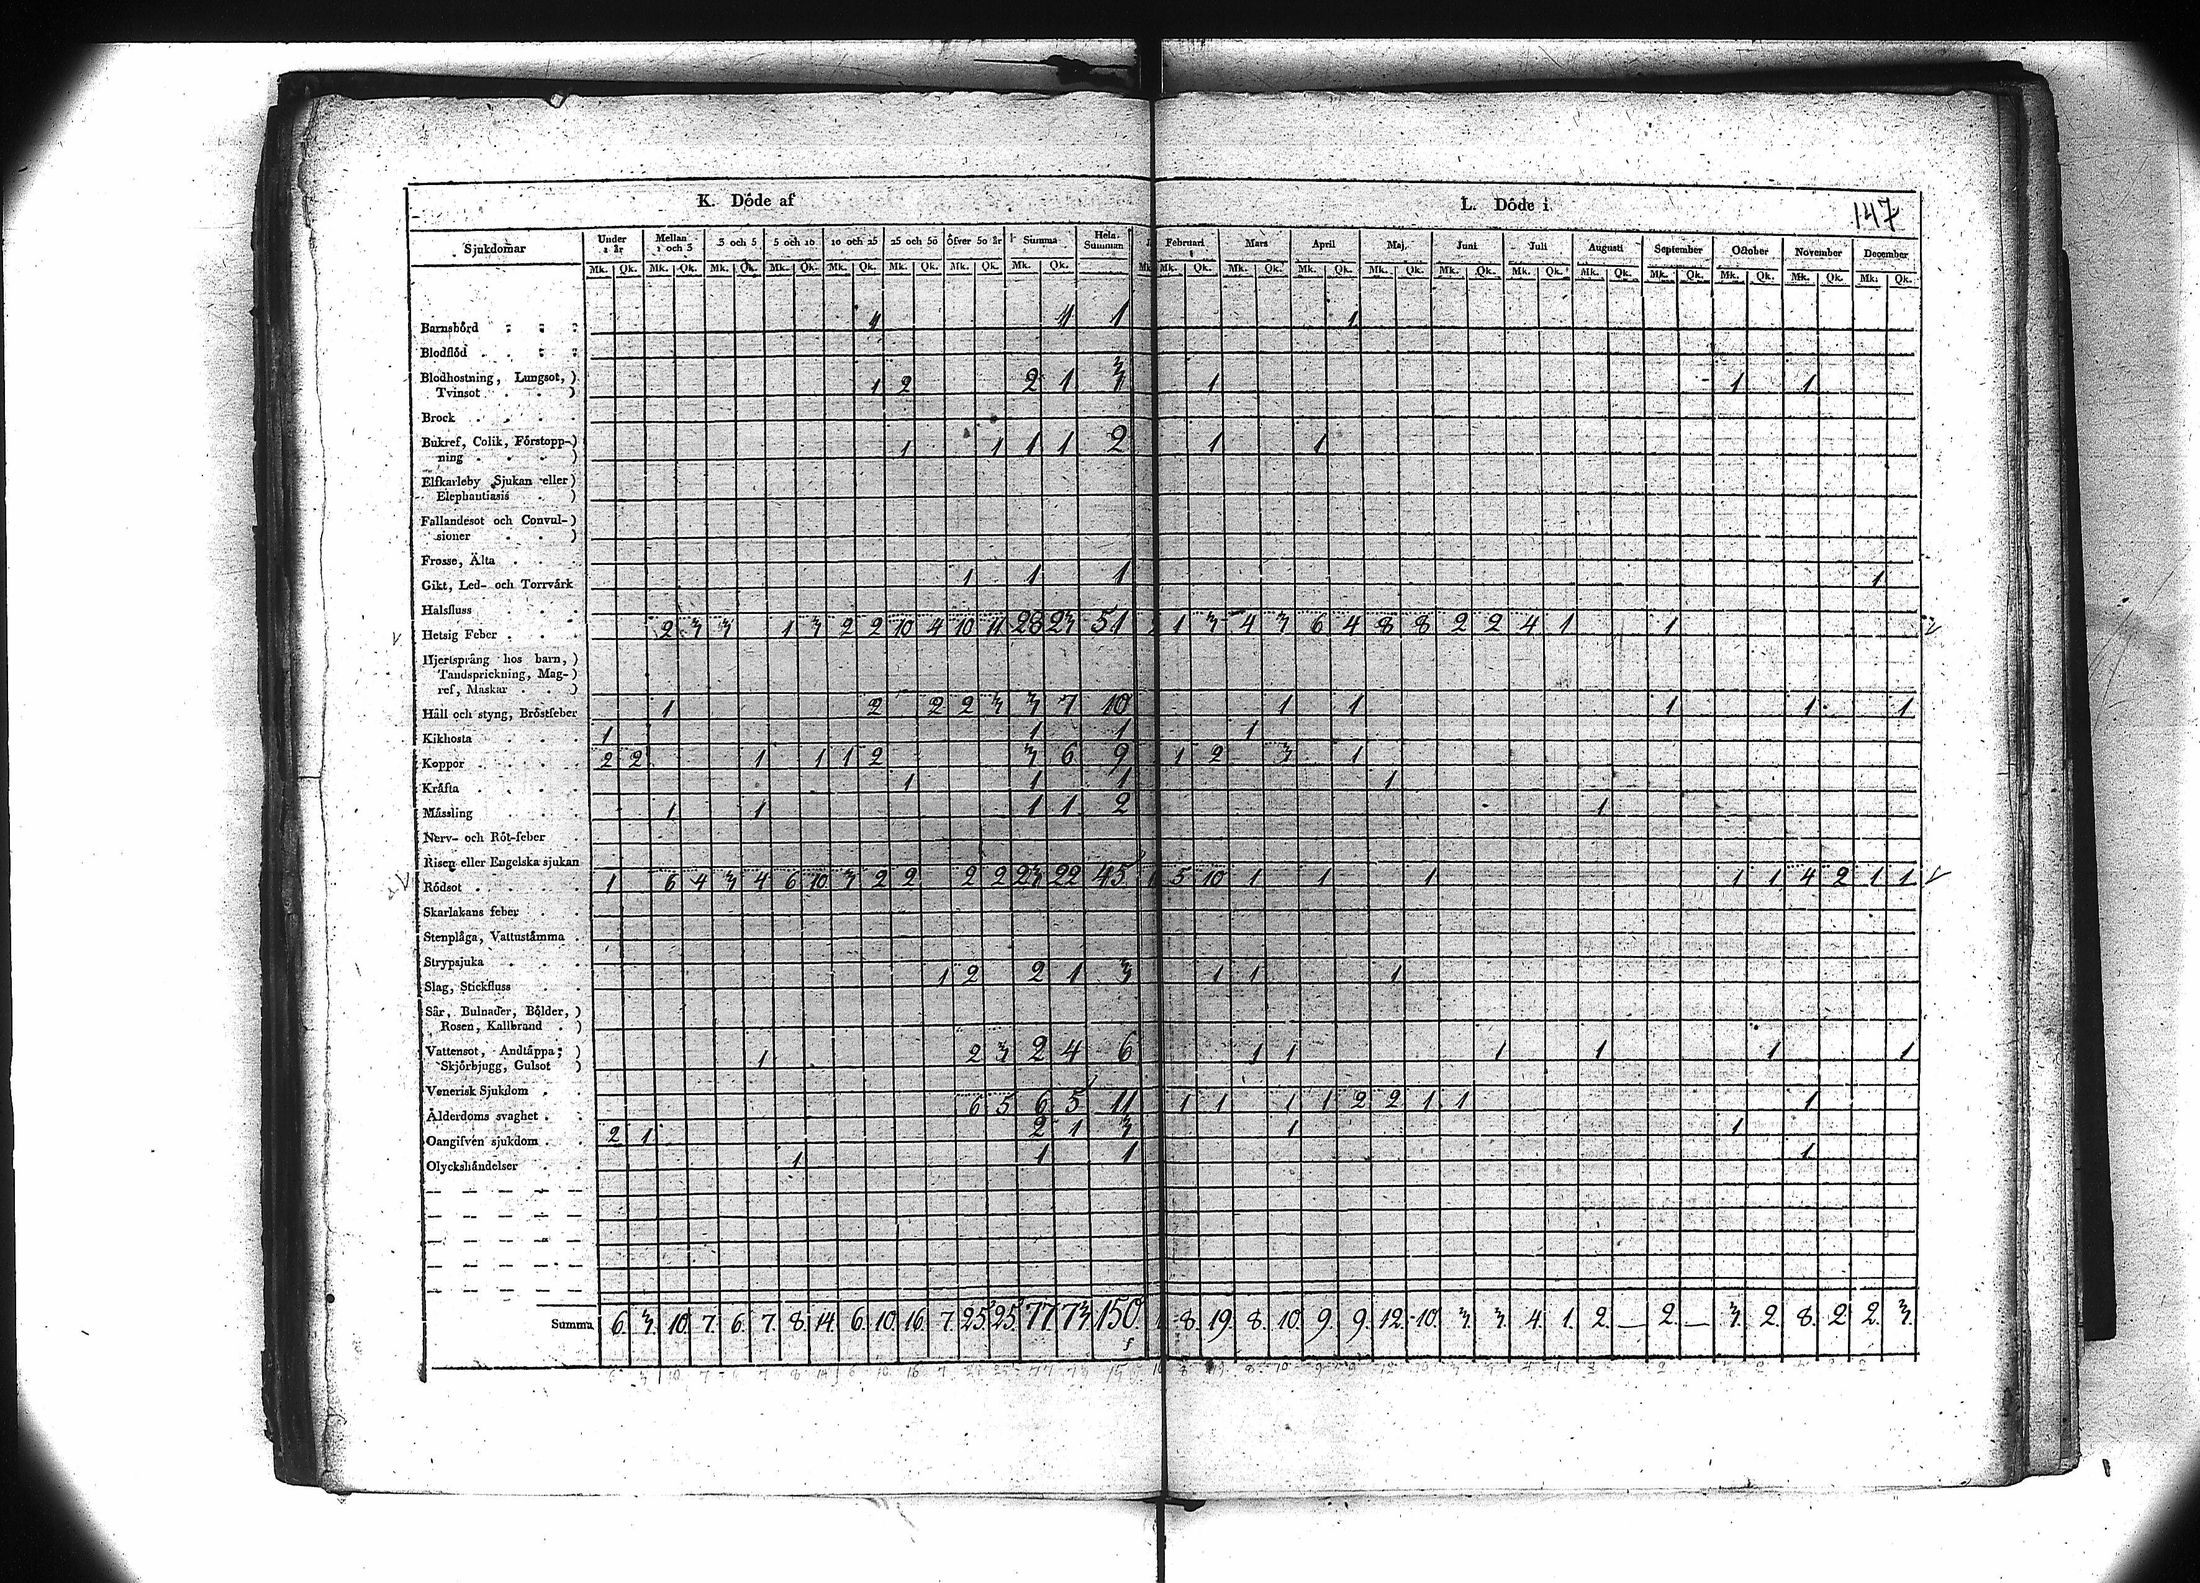 K. Döde af L. Döde i 147
Sjukdomar Under 1 år Mellan 1 och 3 3 och 5 5 och 10 10 och 25 25 och 50 Öfver 50 år Summa Hela Summan Februari Mars April Maj Juni Juli Augusti September October November December
Mk. Qk. Mk. Qk. Mk. Qk. Mk. Qk. Mk. Qk. Mk. Qk. Mk. Qk. Mk. Qk. Mk. Mk. Qk. Mk. Qk. Mk. Qk. Mk. Qk. Mk. Qk. Mk. Qk. Mk. Qk. Mk. Qk. Mk. Qk. Mk. Qk. Mk. Qk.
Barnsbörd 1 1 1 1
Blodflöd
Blodhostning, Lungsot,)
Tvinsot ) 1 2 2 1 3 1 1 1
Brock
Bukref, Colik, Förstopp-)
ning ) 1 1 1 1 2 1 1
Elfkarleby Sjukan eller)
Elephantiasis )
Fallandesot och Convul-)
sioner )
Frosse, Älta
Gikt, Led- och Torrvärk 1 1 1 1
Halsfluss
Hetsig Feber 2 3 3 1 3 2 2 10 4 10 11 28 23 51 1 3 4 3 6 4 8 8 2 2 4 1 1
Hjertsprång hos barn,)
Tandsprickning, Mag-)
ref, Maskar )
Håll och styng, Bröstfeber 1 2 2 2 3 3 7 10 1 1 1 1 1
Kikhosta 1 1 1 1
Koppor 2 2 1 1 1 2 3 6 9 1 2 3 1
Kräfta 1 1 1 1
Mässling 1 1 1 1 2 1
Nerv- och Röt-feber
Risen eller Engelska sjukan
Rödsot 1 6 4 3 4 6 10 3 2 2 2 2 23 22 45 1 5 10 1 1 1 1 1 4 2 1 1
Skarlakans feber
Stenplåga, Vattustämma
Strypsjuka
Slag, Stickfluss 1 2 2 1 3 1 1 1
Sår, Bulnader, Bölder,)
Rosen, Kallbrand )
Vattensot, Andtäppa,)
Skjörbjugg, Gulsot ) 1 2 3 2 4 6 1 1 1 1 1 1
Venerisk Sjukdom
Ålderdoms svaghet 6 5 6 5 11 1 1 1 1 2 2 1 1 1
Oangifven sjukdom 2 1 2 1 3 1 1
Olyckshändelser 1 1 1 1
Summa 6. 3. 10. 7. 6. 7. 8. 14. 6. 10. 16. 7. 25 25 77 73 150 8. 19. 8. 10. 9. 9. 12. 10. 3. 3. 4. 1. 2. — 2. — 3. 2. 8. 2 2. 3.